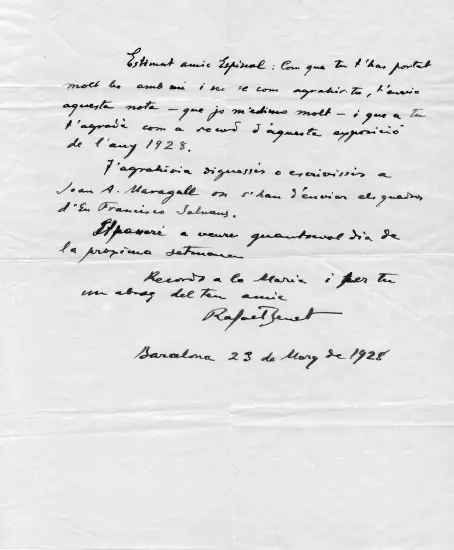 Estimat amic Espinal: Com que tu t'has portat
molt be amb mi i no se com agrahir-tu, t'envio
aquesta nota - que jo m'estimo molt - i que a tu
t'agradà com a record d'aquesta exposició
de l'any 1928.
T'agrahiria diguessis o escrivissis a
Joan A. Maragall on s'han d'enviar els quadros
d'En Francisco Salvans.
Et passaré a veure quansevol dia de
la proxima setmana
Records a la Maria i per tu
un abraç del teu amic
Rafael Benet
Barcelona 23 de Març de 1928